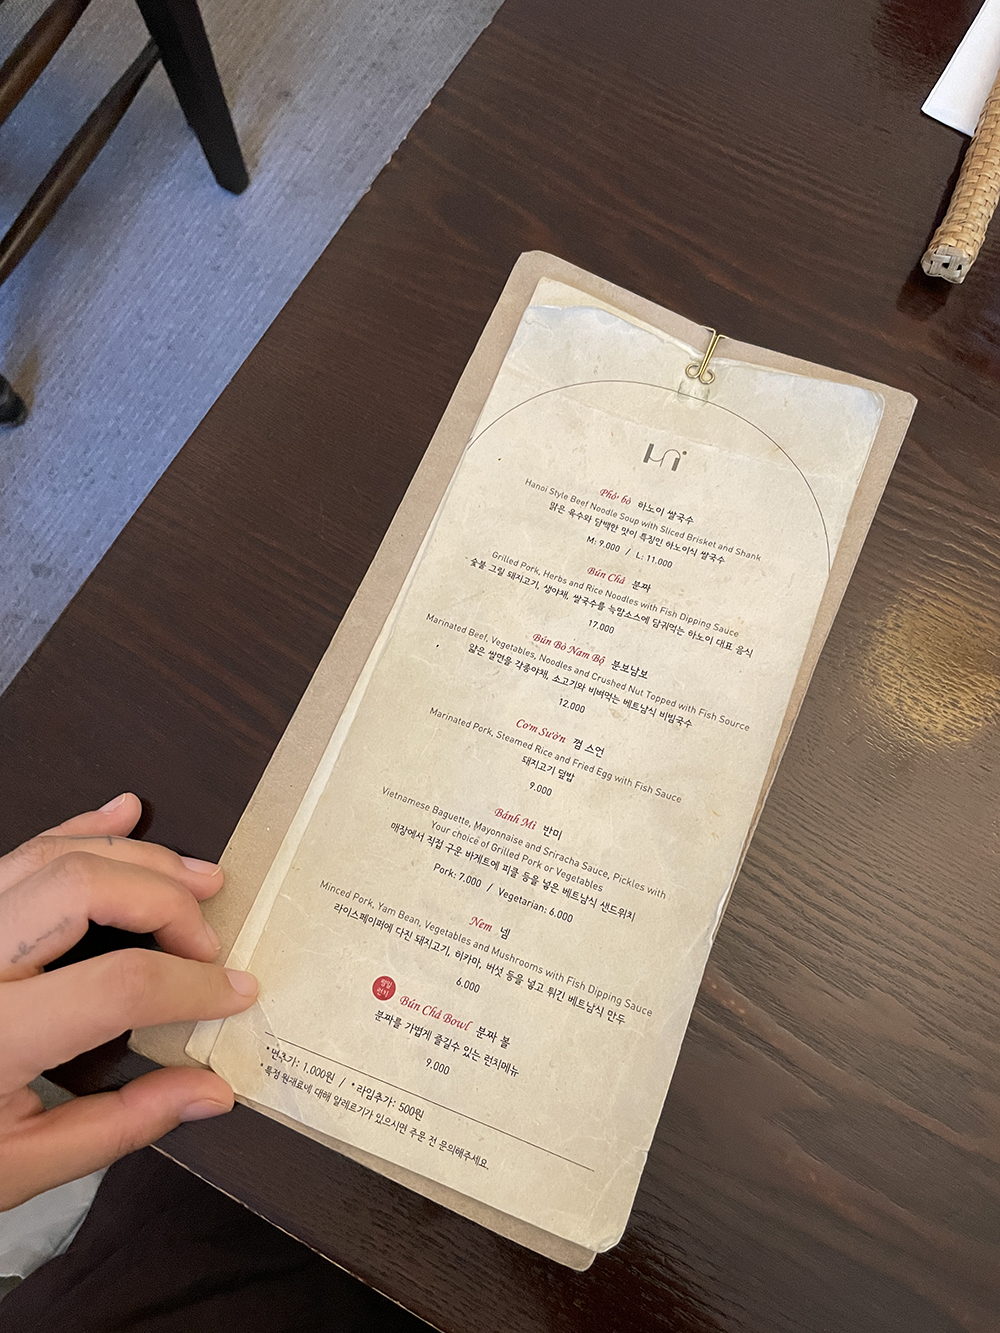 Hni
Phở bò 하노이 쌀국수
Hanoi Style Beef Noodle Soup with Sliced Brisket and Shank
맑은 육수와 담백한 맛이 특징인 하노이식 쌀국수
M: 9.000 / L: 11.000
Bún Chả 분짜
Grilled Pork, Herbs and Rice Noodles with Fish Dipping Sauce
숯불 그릴 돼지고기, 생야채, 쌀국수를 늑맘소스에 담궈먹는 하노이 대표 음식
17.000
Bún Bò Nam Bộ 분보남보
Marinated Beef, Vegetables, Noodles and Crushed Nut Topped with Fish Source
얇은 쌀면을 각종야채, 소고기와 비벼먹는 베트남식 비빔국수
12.000
Cơm Sườn 껌 스언
Marinated Pork, Steamed Rice and Fried Egg with Fish Sauce
돼지고기 덮밥
9.000
Bánh Mì 반미
Vietnamese Baguette, Mayonnaise and Sriracha Sauce, Pickles with
Your choice of Grilled Pork or Vegetables
매장에서 직접 구운 바게트에 피클 등을 넣은 베트남식 샌드위치
Pork: 7,000 / Vegetarian: 6.000
Nem 넴
Minced Pork, Yam Bean, Vegetables and Mushrooms with Fish Dipping Sauce
라이스페이퍼에 다진 돼지고기, 히카마, 버섯 등을 넣고 튀긴 베트남식 만두
6.000
평일
런치
Bún Chả Bowl 분짜 볼
분짜를 가볍게 즐길수 있는 런치메뉴
9.000
*면추가: 1,000원 / *라임추가: 500원
*특정 원재료에 대해 알레르기가 있으시면 주문 전 문의해주세요.